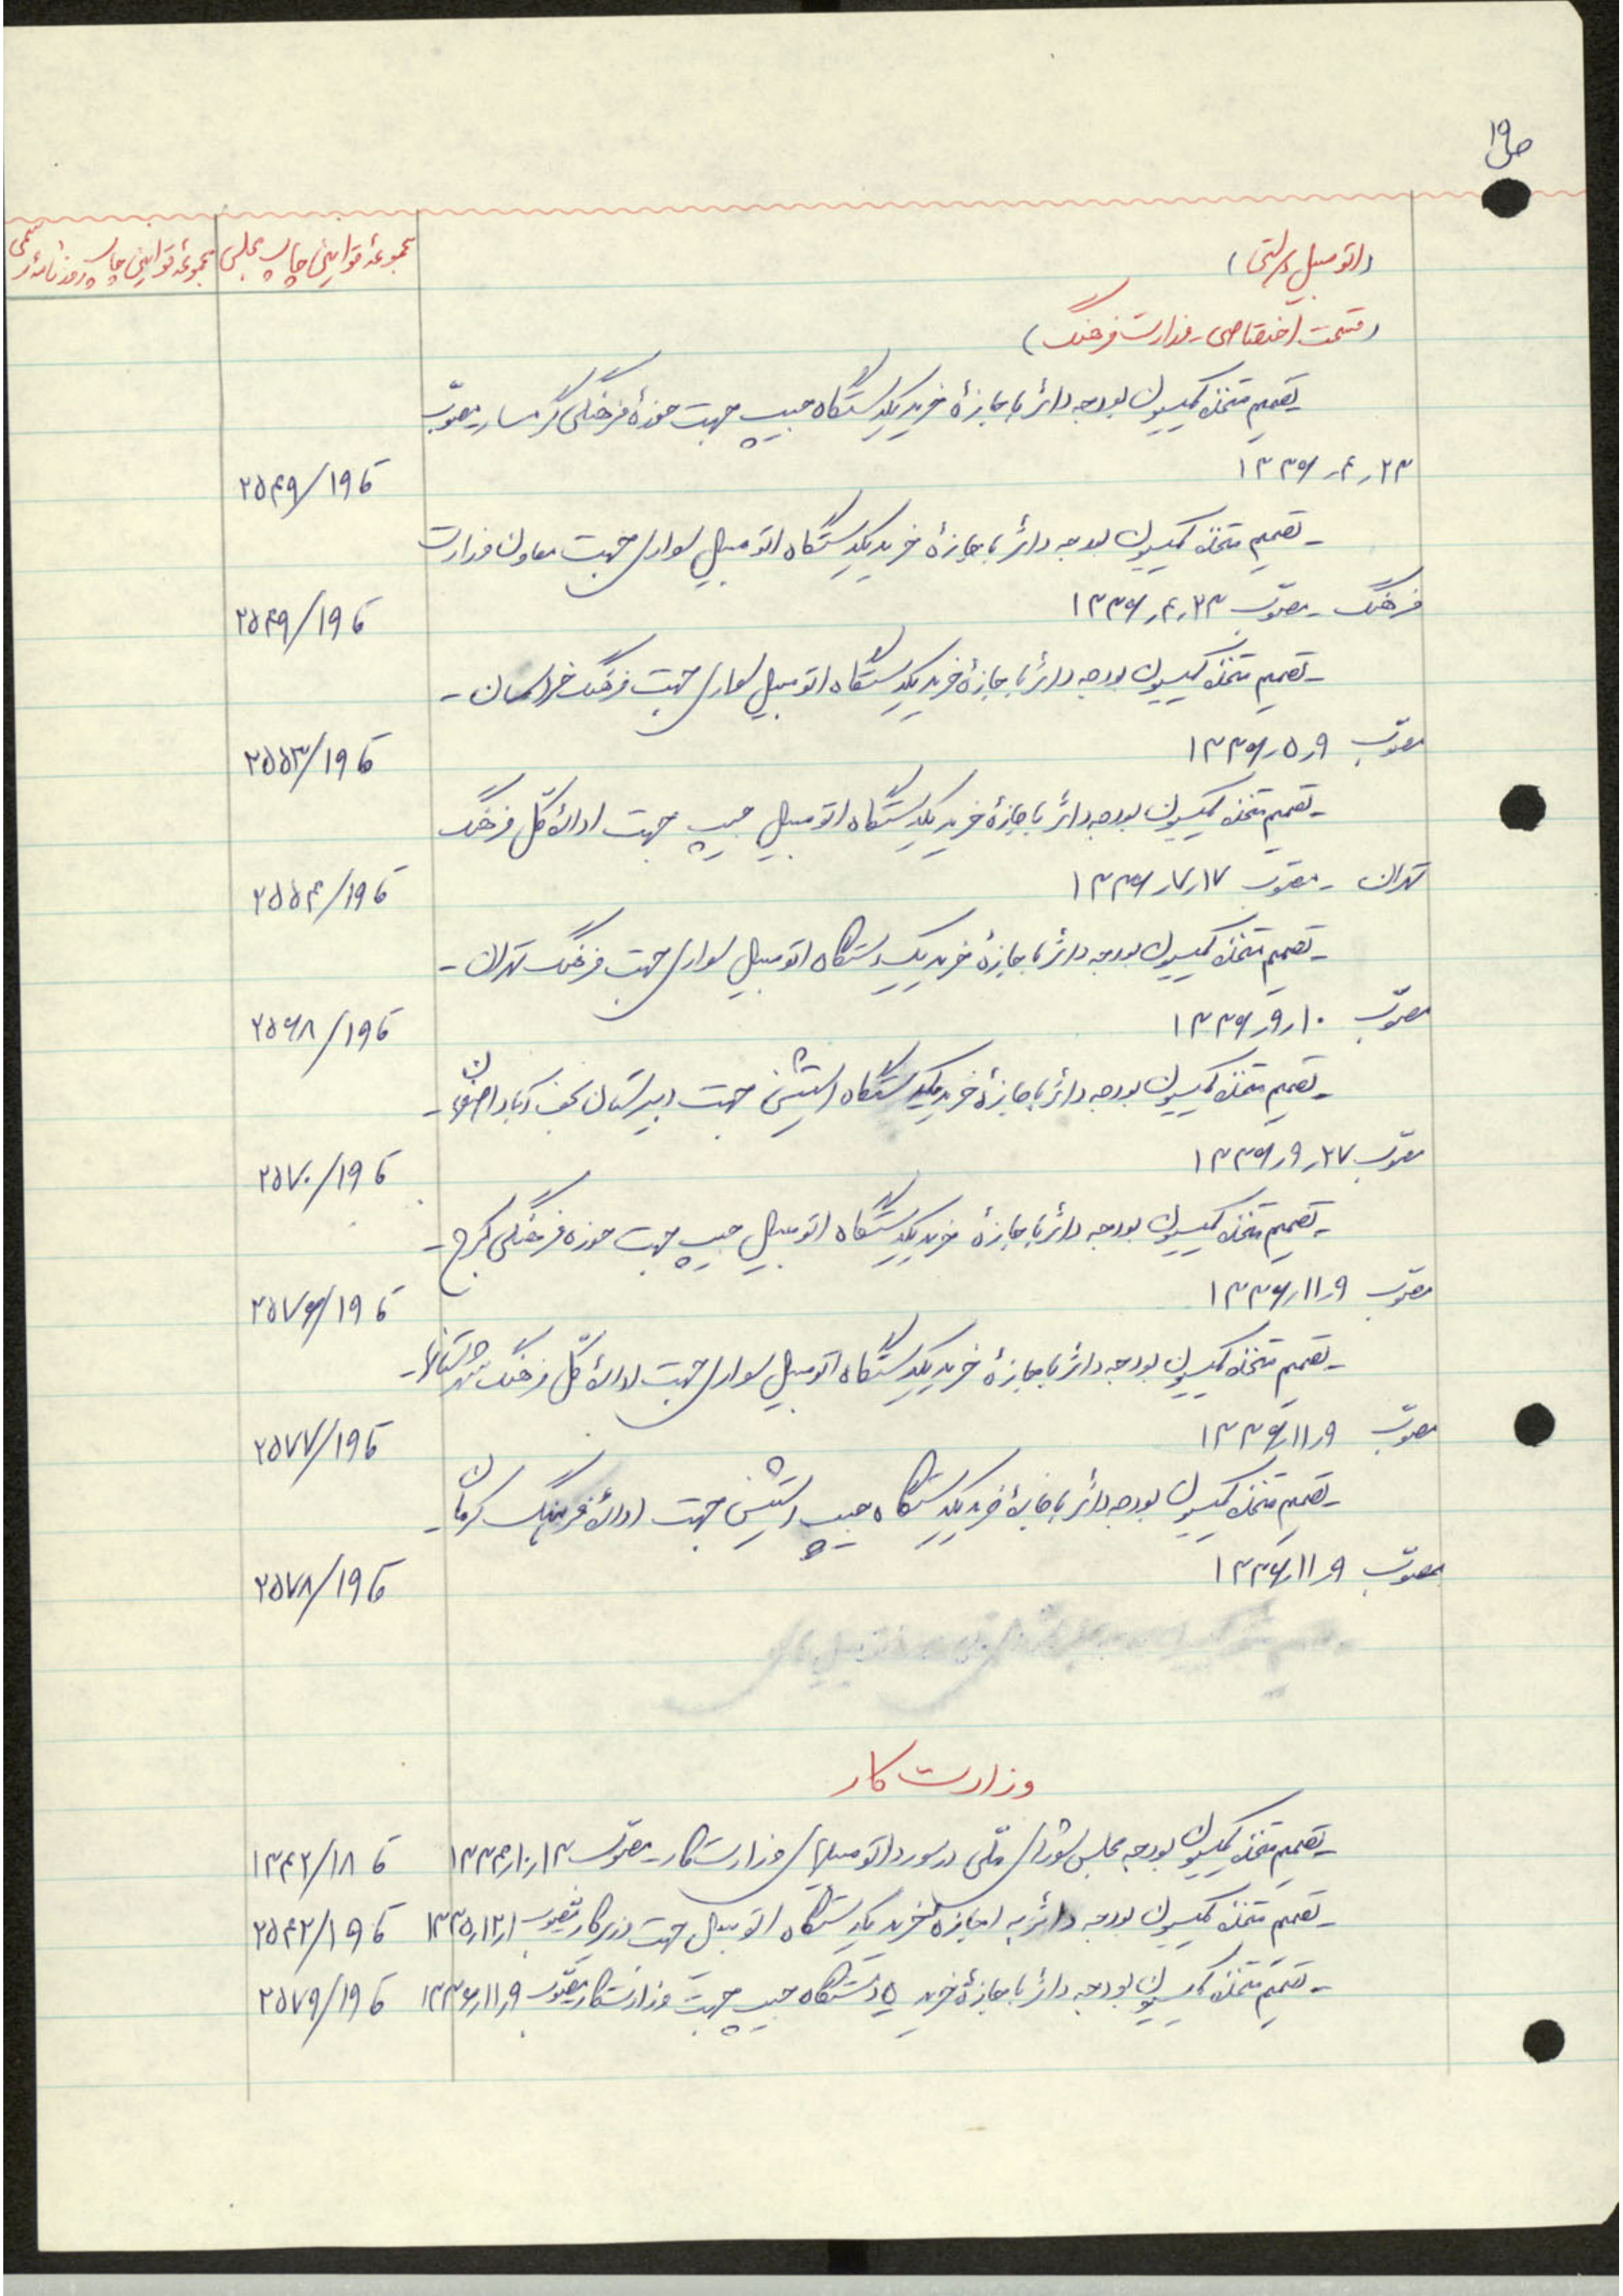 ص ۱۹
مجموعهٔ قوانین چاپ روزنامهٔ رسمی
مجموعهٔ قوانین چاپ مجلس
(اتومبیل دولتی)
(قسمت اختصاصی - وزارت فرهنگ)
تصمیم متخذه کمیسیون بودجه دائر باجازهٔ خرید یکدستگاه جیپ جهت حوزهٔ فرهنگی گرمسار مصوّب
۱۳۳۶٫۴٫۲۳
ق ۱۹/۲۵۴۹
- تصمیم متخذه کمیسیون بودجه دائر باجازهٔ خرید یکدستگاه اتومبیل سواری جهت معاون وزارت
فرهنگ - مصوّب ۱۳۳۶٫۴٫۲۳
ق ۱۹/۲۵۴۹
- تصمیم متخذه کمیسیون بودجه دائر باجازهٔ خرید یکدستگاه اتومبیل سواری جهت فرهنگ خراسان -
مصوّب ۱۳۳۶٫۵٫۹
ق ۱۹/۲۵۵۳
- تصمیم متخذه کمیسیون بودجه دائر باجازهٔ خرید یکدستگاه اتومبیل جیپ جهت ادارهٔ کل فرهنگ
تهران - مصوب ۱۳۳۶٫۷٫۱۷
ق ۱۹/۲۵۵۴
- تصمیم متخذه کمیسیون بودجه دائر باجازهٔ خرید یک دستگاه اتومبیل سواری جهت فرهنگ تهران -
مصوّب ۱۳۳۶٫۹٫۱۰
ق ۱۹/۲۵۶۸
- تصمیم متخذه کمیسیون بودجه دائر باجازهٔ خرید یکدستگاه استیشن جهت دبیرستان نجف آباد اصفهان -
مصوّب ۱۳۳۶٫۹٫۲۷
ق ۱۹/۲۵۷۰
- تصمیم متخذه کمیسیون بودجه دائر باجازهٔ خرید یکدستگاه اتومبیل جیپ جهت حوزه فرهنگی کرج -
مصوّب ۱۳۳۶٫۱۱٫۹
ق ۱۹/۲۵۷۶
- تصمیم متخذه کمیسیون بودجه دائر باجازهٔ خرید یکدستگاه اتومبیل سواری جهت ادارهٔ کل فرهنگ شهرستانها -
مصوّب ۱۳۳۶٫۱۱٫۹
ق ۱۹/۲۵۷۷
- تصمیم متخذه کمیسیون بودجه دائر باجازهٔ خرید یکدستگاه جیپ استیشن جهت ادارهٔ فرهنگ کرمان -
مصوّب ۱۳۳۶٫۱۱٫۹
ق ۱۹/۲۵۷۸
وزارت کار
- تصمیم متخذه کمیسیون بودجه مجلس شورای ملّی در مورد اتومبیلهای وزارت کار - مصوّب ۱۳۳۴٫۱۰٫۱۳ ق ۱۸/۱۳۴۲
- تصمیم متخذه کمیسیون بودجه دائر به اجازه خرید یکدستگاه اتومبیل جهت وزیر کار مصوب ۱۳۳۵٫۱۲٫۱ ق ۱۹/۲۵۴۲
- تصمیم متخذه کمیسیون بودجه دائر باجازهٔ خرید ۵ دستگاه جیپ جهت وزارت کار مصوّب ۱۳۳۶٫۱۱٫۹ ق ۱۹/۲۵۷۹